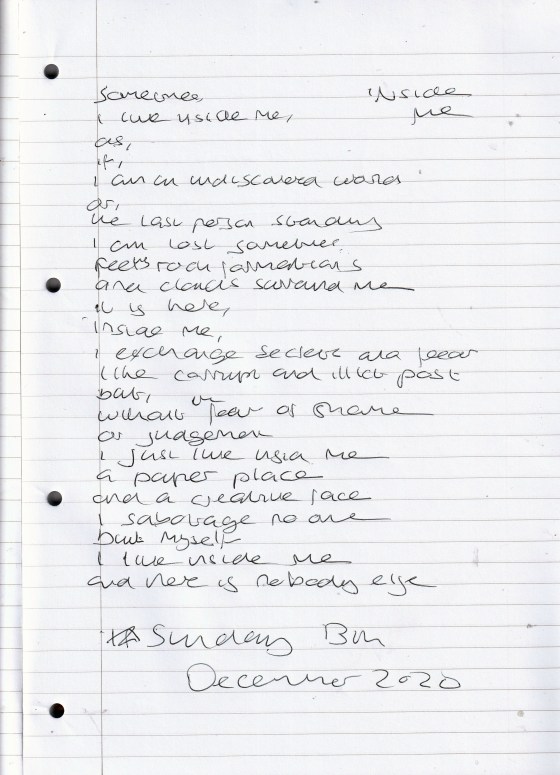 Sometimes Inside
i live inside me, me
as,
if,
i am an undiscovered world
or,
the last person standing
i am lost sometimes
feels rock formations
and clouds surround me
it is here,
inside me,
i exchange secrets and
like corrupt and illicit post
but,
without fear or shame
or judgement
i just live inside me
a paper place
and a creative face
i sabotage no one
but myself
i live inside me
and there is nobody else
Sunday
December 2020